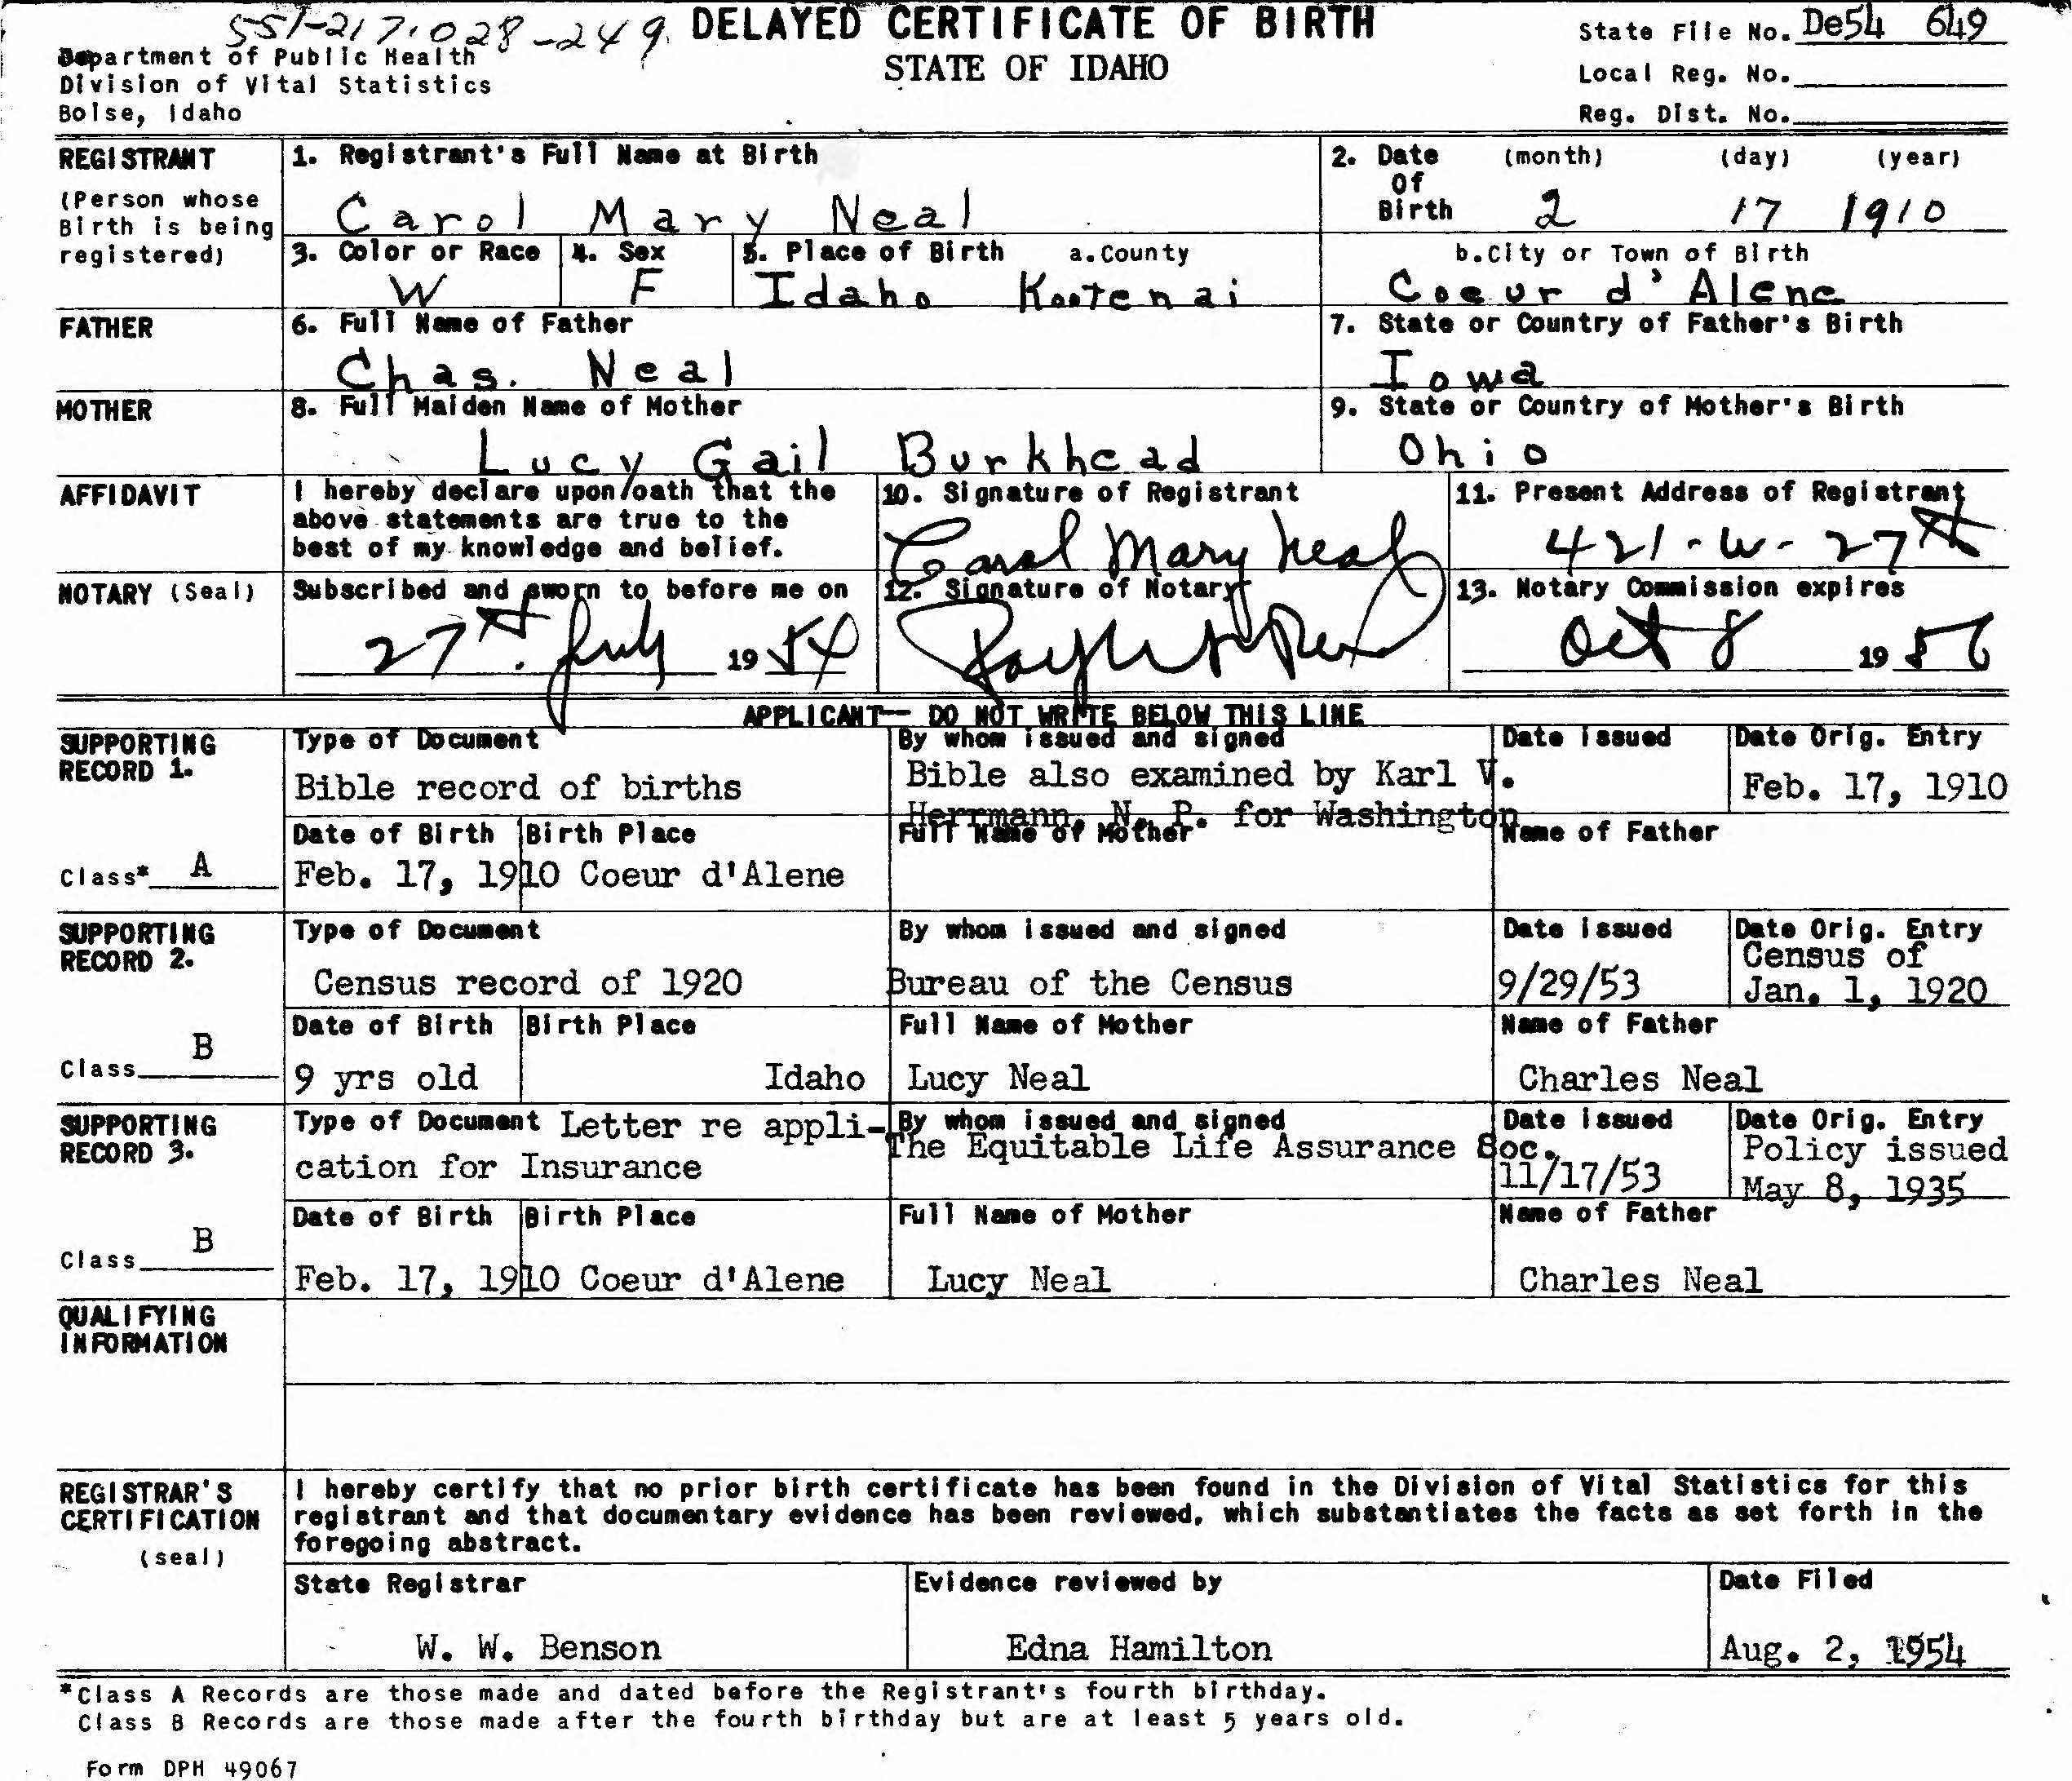 551-217-028-249. DELAYED CERTIFICATE OF BIRTH
STATE OF IDAHO
Department of Public Health
Division of Vital Statistics
Boise, Idaho
State File No. De54 649
Local Reg. No.
Reg. Dist. No.
REGISTRANT
(Person whose
Birth is being
registered)
1. Registrant's Full Name at Birth
Carol Mary Neal
2. Date Of Birth (month) (day) (year)
2 17 1910
3. Color or Race
W
4. Sex
F
5. Place of Birth a. County
Idaho Kootenai
b. City or Town of Birth
Coeur d'Alene
FATHER
6. Full Name of Father
Chas. Neal
7. State or Country of Father's Birth
Iowa
MOTHER
8. Full Maiden Name of Mother
Lucy Gail Burkhead
9. State or Country of Mother's Birth
Ohio
AFFIDAVIT
I hereby declare upon oath that the
above statements are true to the
best of my knowledge and belief.
10. Signature of Registrant
Carol Mary Neal
11. Present Address of Registrant
421-W-27th
NOTARY (Seal)
Subscribed and sworn to before me on
27th July 1954
12. Signature of Notary
13. Notary Commission expires
Oct 8 1956
APPLICANT-- DO NOT WRITE BELOW THIS LINE
SUPPORTING
RECORD 1.
Class* A
Type of Document
Bible record of births
By whom issued and signed
Bible also examined by Karl V.
Herrmann, N. P. for Washington
Date issued
Date Orig. Entry
Feb. 17, 1910
Date of Birth
Feb. 17, 1910
Birth Place
Coeur d'Alene
Full Name of Mother
Name of Father
SUPPORTING
RECORD 2.
Class B
Type of Document
Census record of 1920
By whom issued and signed
Bureau of the Census
Date issued
9/29/53
Date Orig. Entry
Census of
Jan. 1, 1920
Date of Birth
9 yrs old
Birth Place
Idaho
Full Name of Mother
Lucy Neal
Name of Father
Charles Neal
SUPPORTING
RECORD 3.
Class B
Type of Document Letter re appli-
cation for Insurance
By whom issued and signed
The Equitable Life Assurance Soc.
Date issued
11/17/53
Date Orig. Entry
Policy issued
May 8, 1935
Date of Birth
Feb. 17, 1910
Birth Place
Coeur d'Alene
Full Name of Mother
Lucy Neal
Name of Father
Charles Neal
QUALIFYING
INFORMATION
REGISTRAR'S
CERTIFICATION
(seal)
I hereby certify that no prior birth certificate has been found in the Division of Vital Statistics for this
registrant and that documentary evidence has been reviewed, which substantiates the facts as set forth in the
foregoing abstract.
State Registrar
W. W. Benson
Evidence reviewed by
Edna Hamilton
Date Filed
Aug. 2, 1954
*Class A Records are those made and dated before the Registrant's fourth birthday.
Class B Records are those made after the fourth birthday but are at least 5 years old.
Form DPH 49067